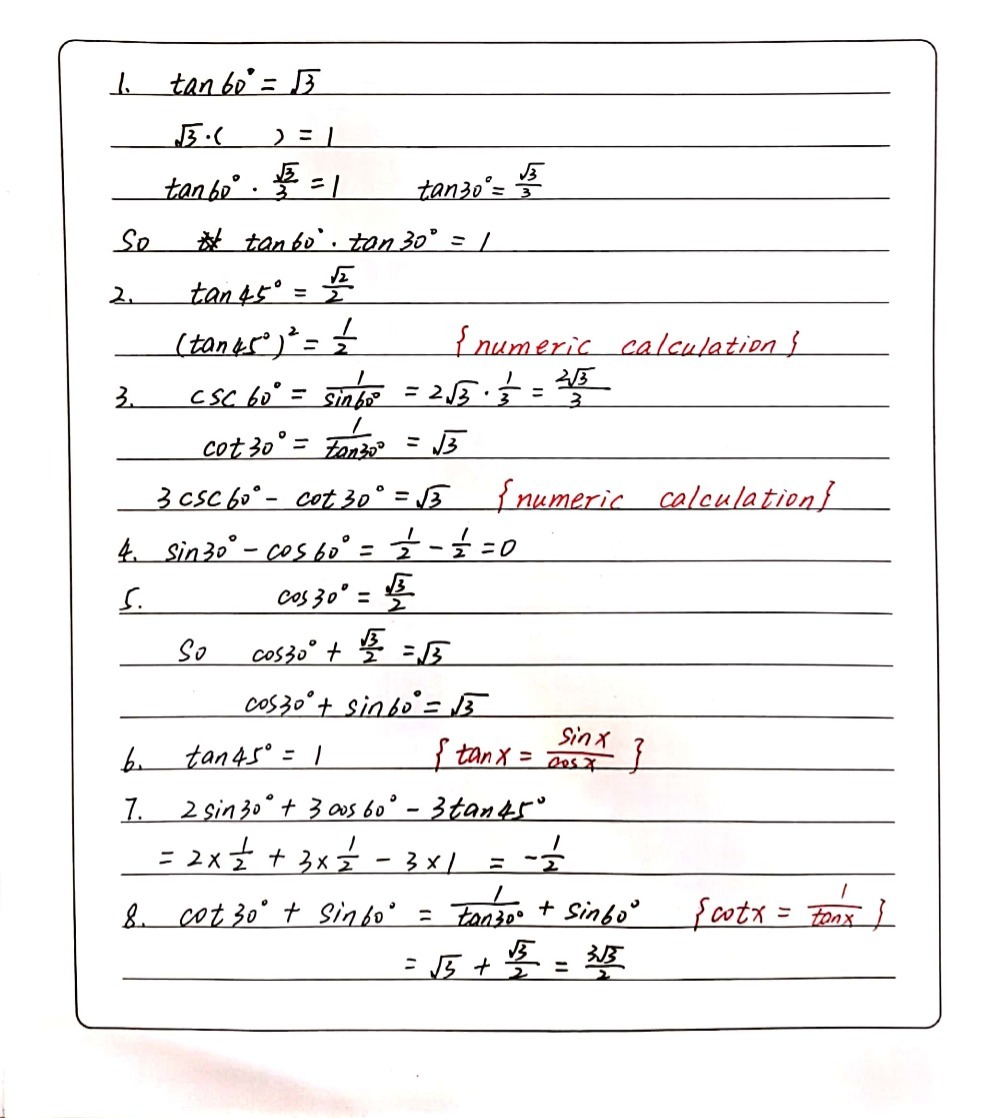 1. tan60° = √3
√3·(   ) = 1
tan60° · √3/3 = 1   tan30° = √3/3
So tan60° · tan30° = 1
2. tan45° = √2/2
(tan45°)² = 1/2   {numeric calculation}
3. csc60° = 1/sin60° = 2√3 · 1/3 = 2√3/3
cot30° = 1/tan30° = √3
3csc60° - cot30° = √3   {numeric calculation}
4. sin30° - cos60° = 1/2 - 1/2 = 0
5. cos30° = √3/2
So cos30° + √3/2 = √3
cos30° + sin60° = √3
6. tan45° = 1   {tanx = sinx/cosx}
7. 2sin30° + 3cos60° - 3tan45°
= 2×1/2 + 3×1/2 - 3×1 = -1/2
8. cot30° + sin60° = 1/tan30° + sin60°   {cotx = 1/tanx}
= √3 + √3/2 = 3√3/2